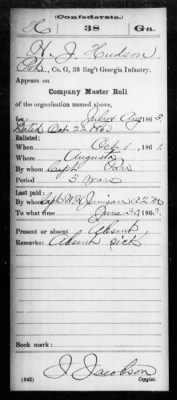 (Confederate.)
H 38 Ga.
H. J. Hudson
Co. G, 38 Reg't Georgia Infantry.
Appears on
Company Muster Roll
of the organization named above,
for July & Aug, 1863.
Dated Oct 22 1863
Enlisted:
When Oct 1, 1861.
Where Augusta
By whom Capt
Period 3 years
Last paid:
By whom Capt W H
To what time June 30, 1863.
Present or absent Absent
Remarks: Absent sick
Book mark:
J. Jacobson
(642) Copyist.